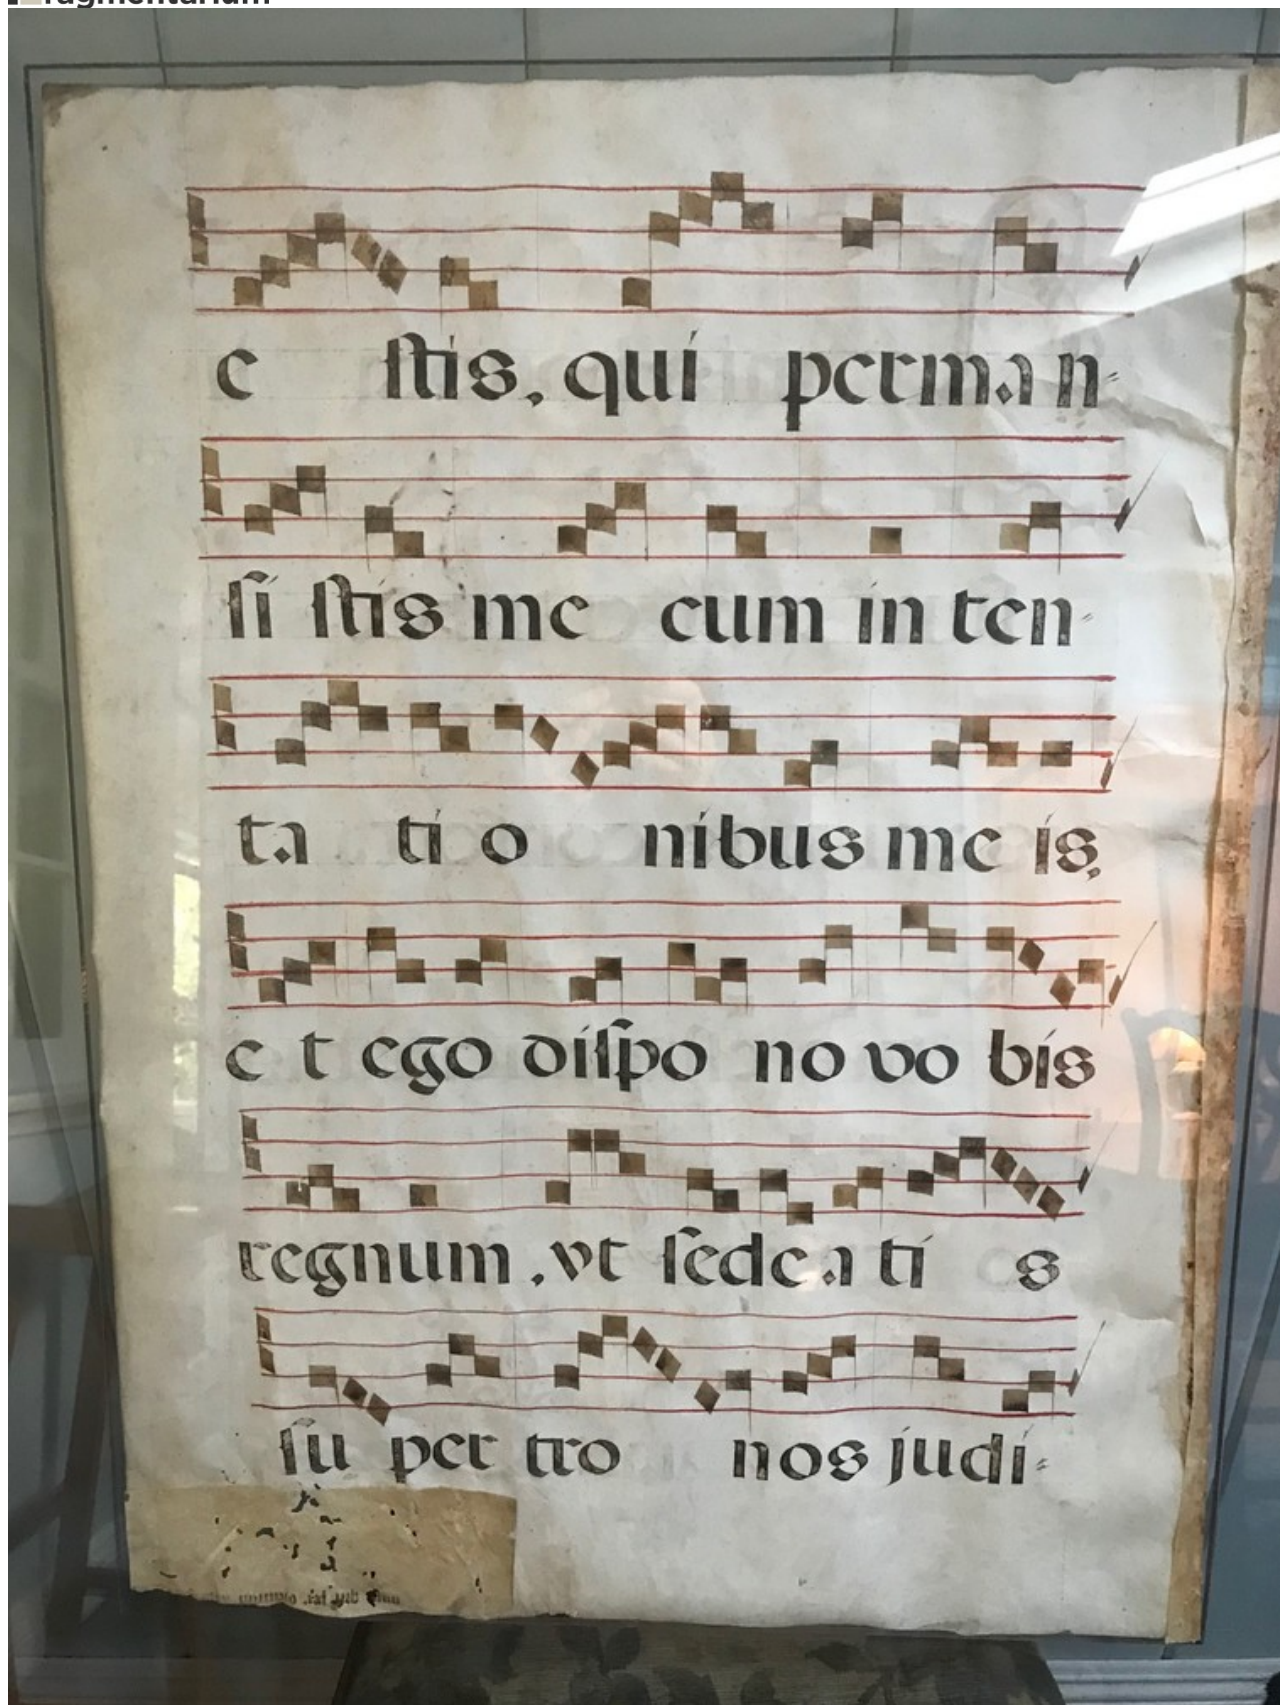 ragmentarium
e stis, qui perman-
si stis me cum in ten-
ta ti o nibus me is,
e t ego dispo no vo bis
regnum, vt sedea ti s
su per tro nos judi-